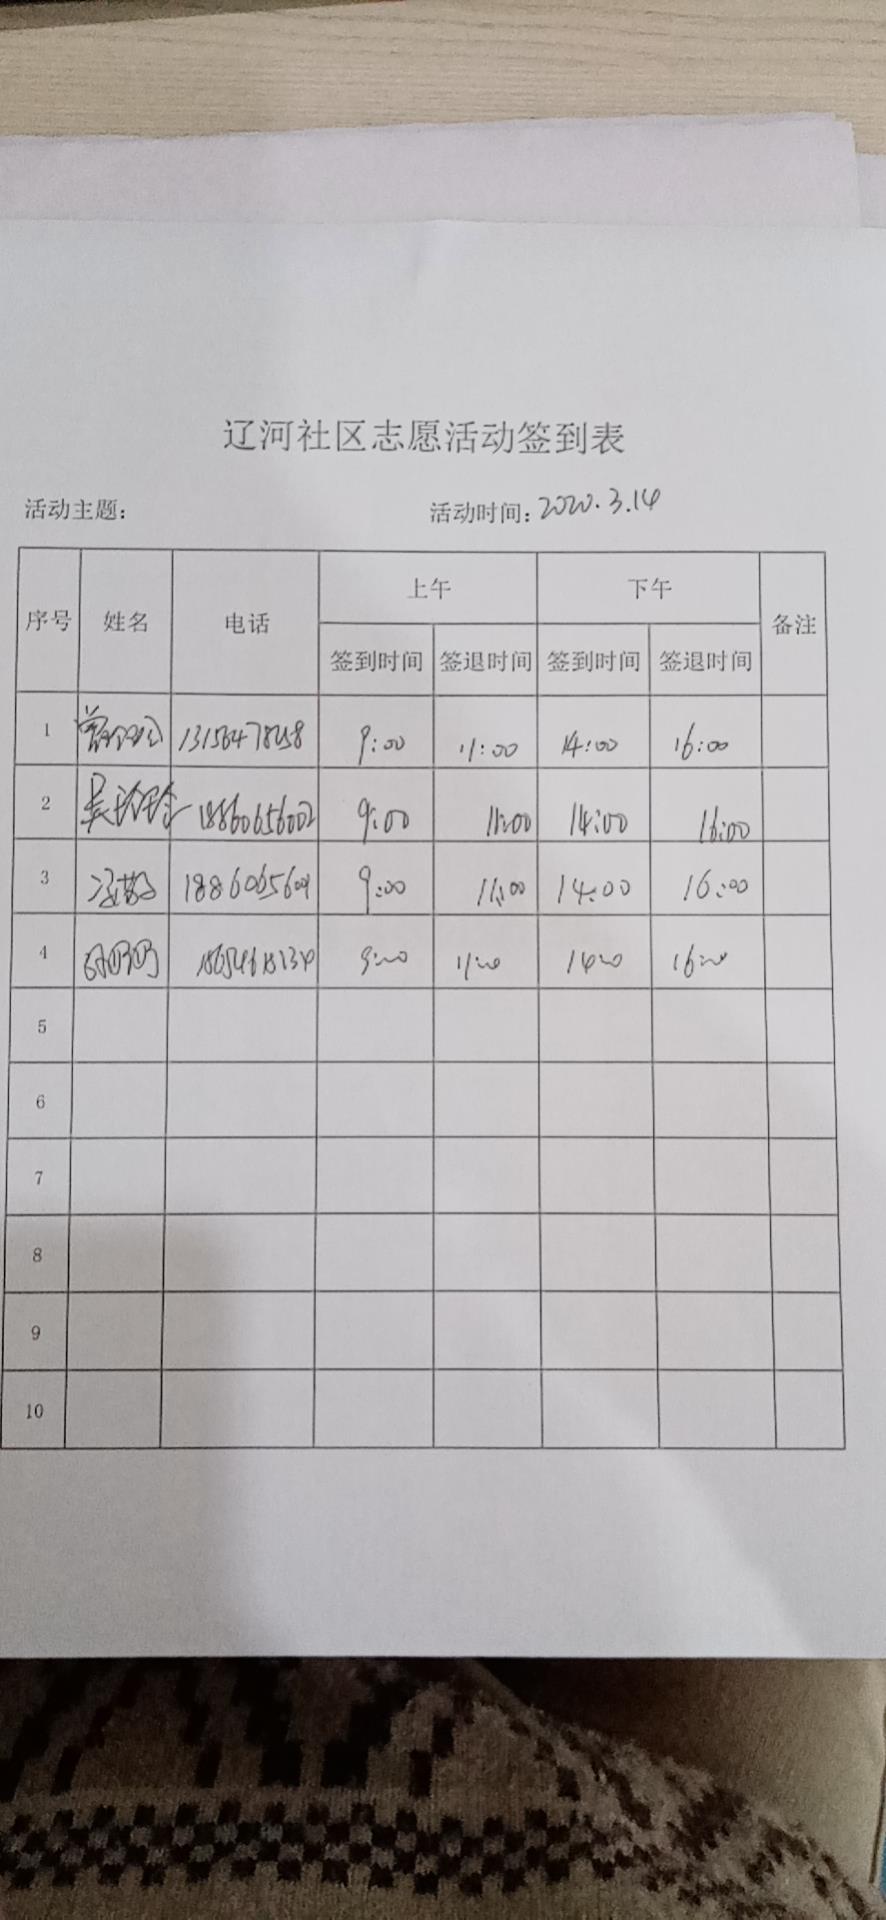 辽河社区志愿活动签到表
活动主题： 活动时间：2020.3.14
序号 姓名 电话 上午 下午 备注
签到时间 签退时间 签到时间 签退时间
1 9:00 11:00 14:00 16:00
2 18860656002 9:00 11:00 14:00 16:00
3 9:00 11:00 14:00 16:00
4 9:00 11:00 14:00 16:00
5
6
7
8
9
10